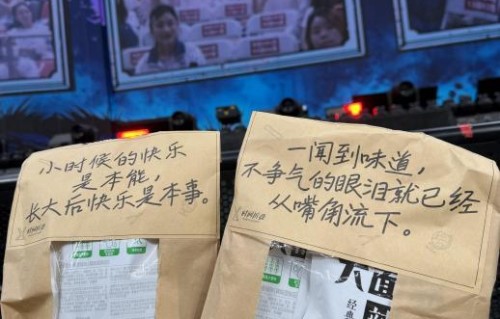 小时候的快乐
是本能,
长大后快乐是本事。
一闻到味道,
不争气的眼泪就已经
从嘴角流下。
大面
经典